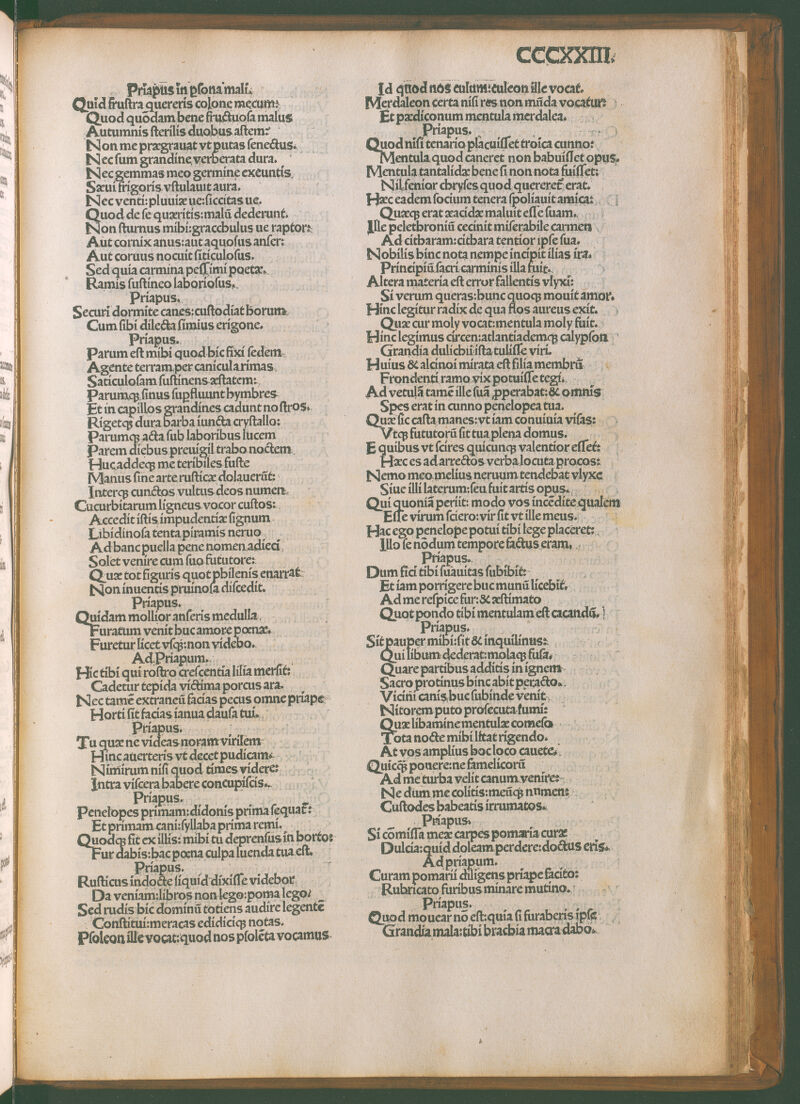 CCCXXIII.
Priapus in psona mali.
Quid frustra quereris colone mecum:
Quod quōdam bene fructuosa malus
Autumnis sterilis duobus astem:
Non me prægrauat vt putas senectus.
Nec sum grandine verberata dura.
Nec gemmas meo germine exeuntis
Sæui frigoris vstulauit aura.
Nec venti:pluuiæ ue:siccitas ue.
Quod de se quæritis:malū dederunt.
Non sturnus mihi:graccbulus ue raptor:
Aut cornix anus:aut aquosus anser:
Aut coruus nocuit siticulosus.
Sed quia carmina pessimi poetæ.
Ramis sustineo laboriosus.
Priapus.
Securi dormite canes:custodiat hortum
Cum sibi dilecta simius erigone.
Priapus.
Parum est mihi quod hic fixi sedem
Agente terram per canicula rimas
Saticulosam sustinens æstatem:
Parumqꝫ sinus supfluunt hymbres
Et in capillos grandines cadunt nostros.
Rigetqꝫ dura barba iuncta crystallo:
Parumqꝫ acta sub laboribus lucem
Parem diebus preuigil trabo noctem
Huc addeqꝫ me teribiles fuste
Manus sine arte rusticæ dolauerūt:
Interqꝫ cunctos vultus deos numen
Cucurbitarum ligneus vocor custos:
Accedit istis impudentiæ signum
Libidinosa tenta piramis neruo
Ad hanc puella pene nomen adieci
Solet venire cum suo fututore:
Quæ tot figuris quot philenis enarrat
Non inuentis pruinosa discedit.
Priapus.
Quidam mollior anseris medulla
Furatum venit huc amore poenæ.
Furetur licet vsqꝫ:non videbo.
Ad Priapum.
Hic tibi qui rostro crescentia lilia mersit:
Cadetur tepida victima porcus ara.
Nec tamē extraneū facias pecus omne priape
Horti sit facias ianua clausa tui.
Priapus.
Tu quæ ne videas noram virilem
Hinc auerteris vt decet pudicam:
Nimirum nisi quod times videre:
Intra viscera habere concupiscis.
Priapus.
Penelopes primam:didonis prima sequat:
Et primam cani:syllaba prima remi.
Quodqꝫ fit ex illis: mihi tu deprensus in horto:
Fur dabis:hac poena culpa luenda tua est.
Priapus.
Rusticus indocte siquid dixisse videbor
Da veniam:libros non lego:poma lego:
Sed rudis hic dominū totiens audire legentē
Constitui:meracas edidiciqꝫ notas.
Psoleon ille vocat:quod nos psolēta vocamus
Id quod nos culum:culeon ille vocat.
Merdaleon certa nisi res non mūda vocatur:
Et pædiconum mentula merdalea.
Priapus.
Quod nisi tenario placuisset troica cunno:
Mentula quod caneret non habuisset opus.
Mentula tantalidæ bene si non nota fuisset:
Nil senior chryses quod quereret erat.
Hæc eadem socium tenera spoliauit amica:
Quæqꝫ erat æacidæ maluit esse suam.
Ille peletbroniū cecinit miserabile carmen
Ad citharam:cithara tentior ipse sua.
Nobilis hinc nota nempe incipit ilias ira.
Principiū sacri carminis illa fuit.
Altera materia est error fallentis vlyxi:
Si verum queras:hunc quoqꝫ mouit amor.
Hinc legitur radix de qua flos aureus exit.
Quæ cur moly vocat:mentula moly fuit.
Hinc legimus circen:atlantiademqꝫ calypson
Grandia dulichii ista tulisse viri.
Huius & alcinoi mirata est filia membrū
Frondenti ramo vix potuisse tegi.
Ad vetulā tamē ille suā pperabat:& omnis
Spes erat in cunno penelopea tua.
Quæ sic casta manes:vt iam conuiuia visas:
Vtqꝫ fututorū sit tua plena domus.
E quibus vt scires quicunqꝫ valentior esset:
Hæc es ad arrectos verba locuta procos:
Nemo meo melius neruum tendebat vlyxe
Siue illi laterum:seu fuit artis opus.
Qui quoniā periit: modo vos incedite qualem
Esse virum sciero:vir sit vt ille meus.
Hac ego penelope potui tibi lege placere:
Illo se nōdum tempore factus eram.
Priapus.
Dum fici tibi suauitas subibit:
Et iam porrigere huc manū licebit.
Ad me respice fur:& æstimato
Quot pondo tibi mentulam est cacandū.
Priapus.
Sit pauper mihi:sit & inquilinus:
Qui libum dederat:molaqꝫ fusa.
Quare partibus additis in ignem
Sacro protinus hinc abit peracto.
Vicini canis huc subinde venit
Nitorem puto prosecuta fumi:
Quæ libamine mentulæ comeso
Tota nocte mihi litat rigendo.
At vos amplius hoc loco cauete.
Quicqꝫ ponere:ne famelicorū
Ad me turba velit canum venire:
Ne dum me colitis:meūqꝫ numen:
Custodes habeatis irrumatos.
Priapus.
Si cōmissa meæ carpes pomaria curæ
Dulcia:quid doleam perdere:doctus eris.
Ad priapum.
Curam pomarii diligens priape facito:
Rubricato furibus minare mutino.
Priapus.
Quod mouear nō est:quia si furaberis ipse
Grandia mala:tibi brachia macra dabo.